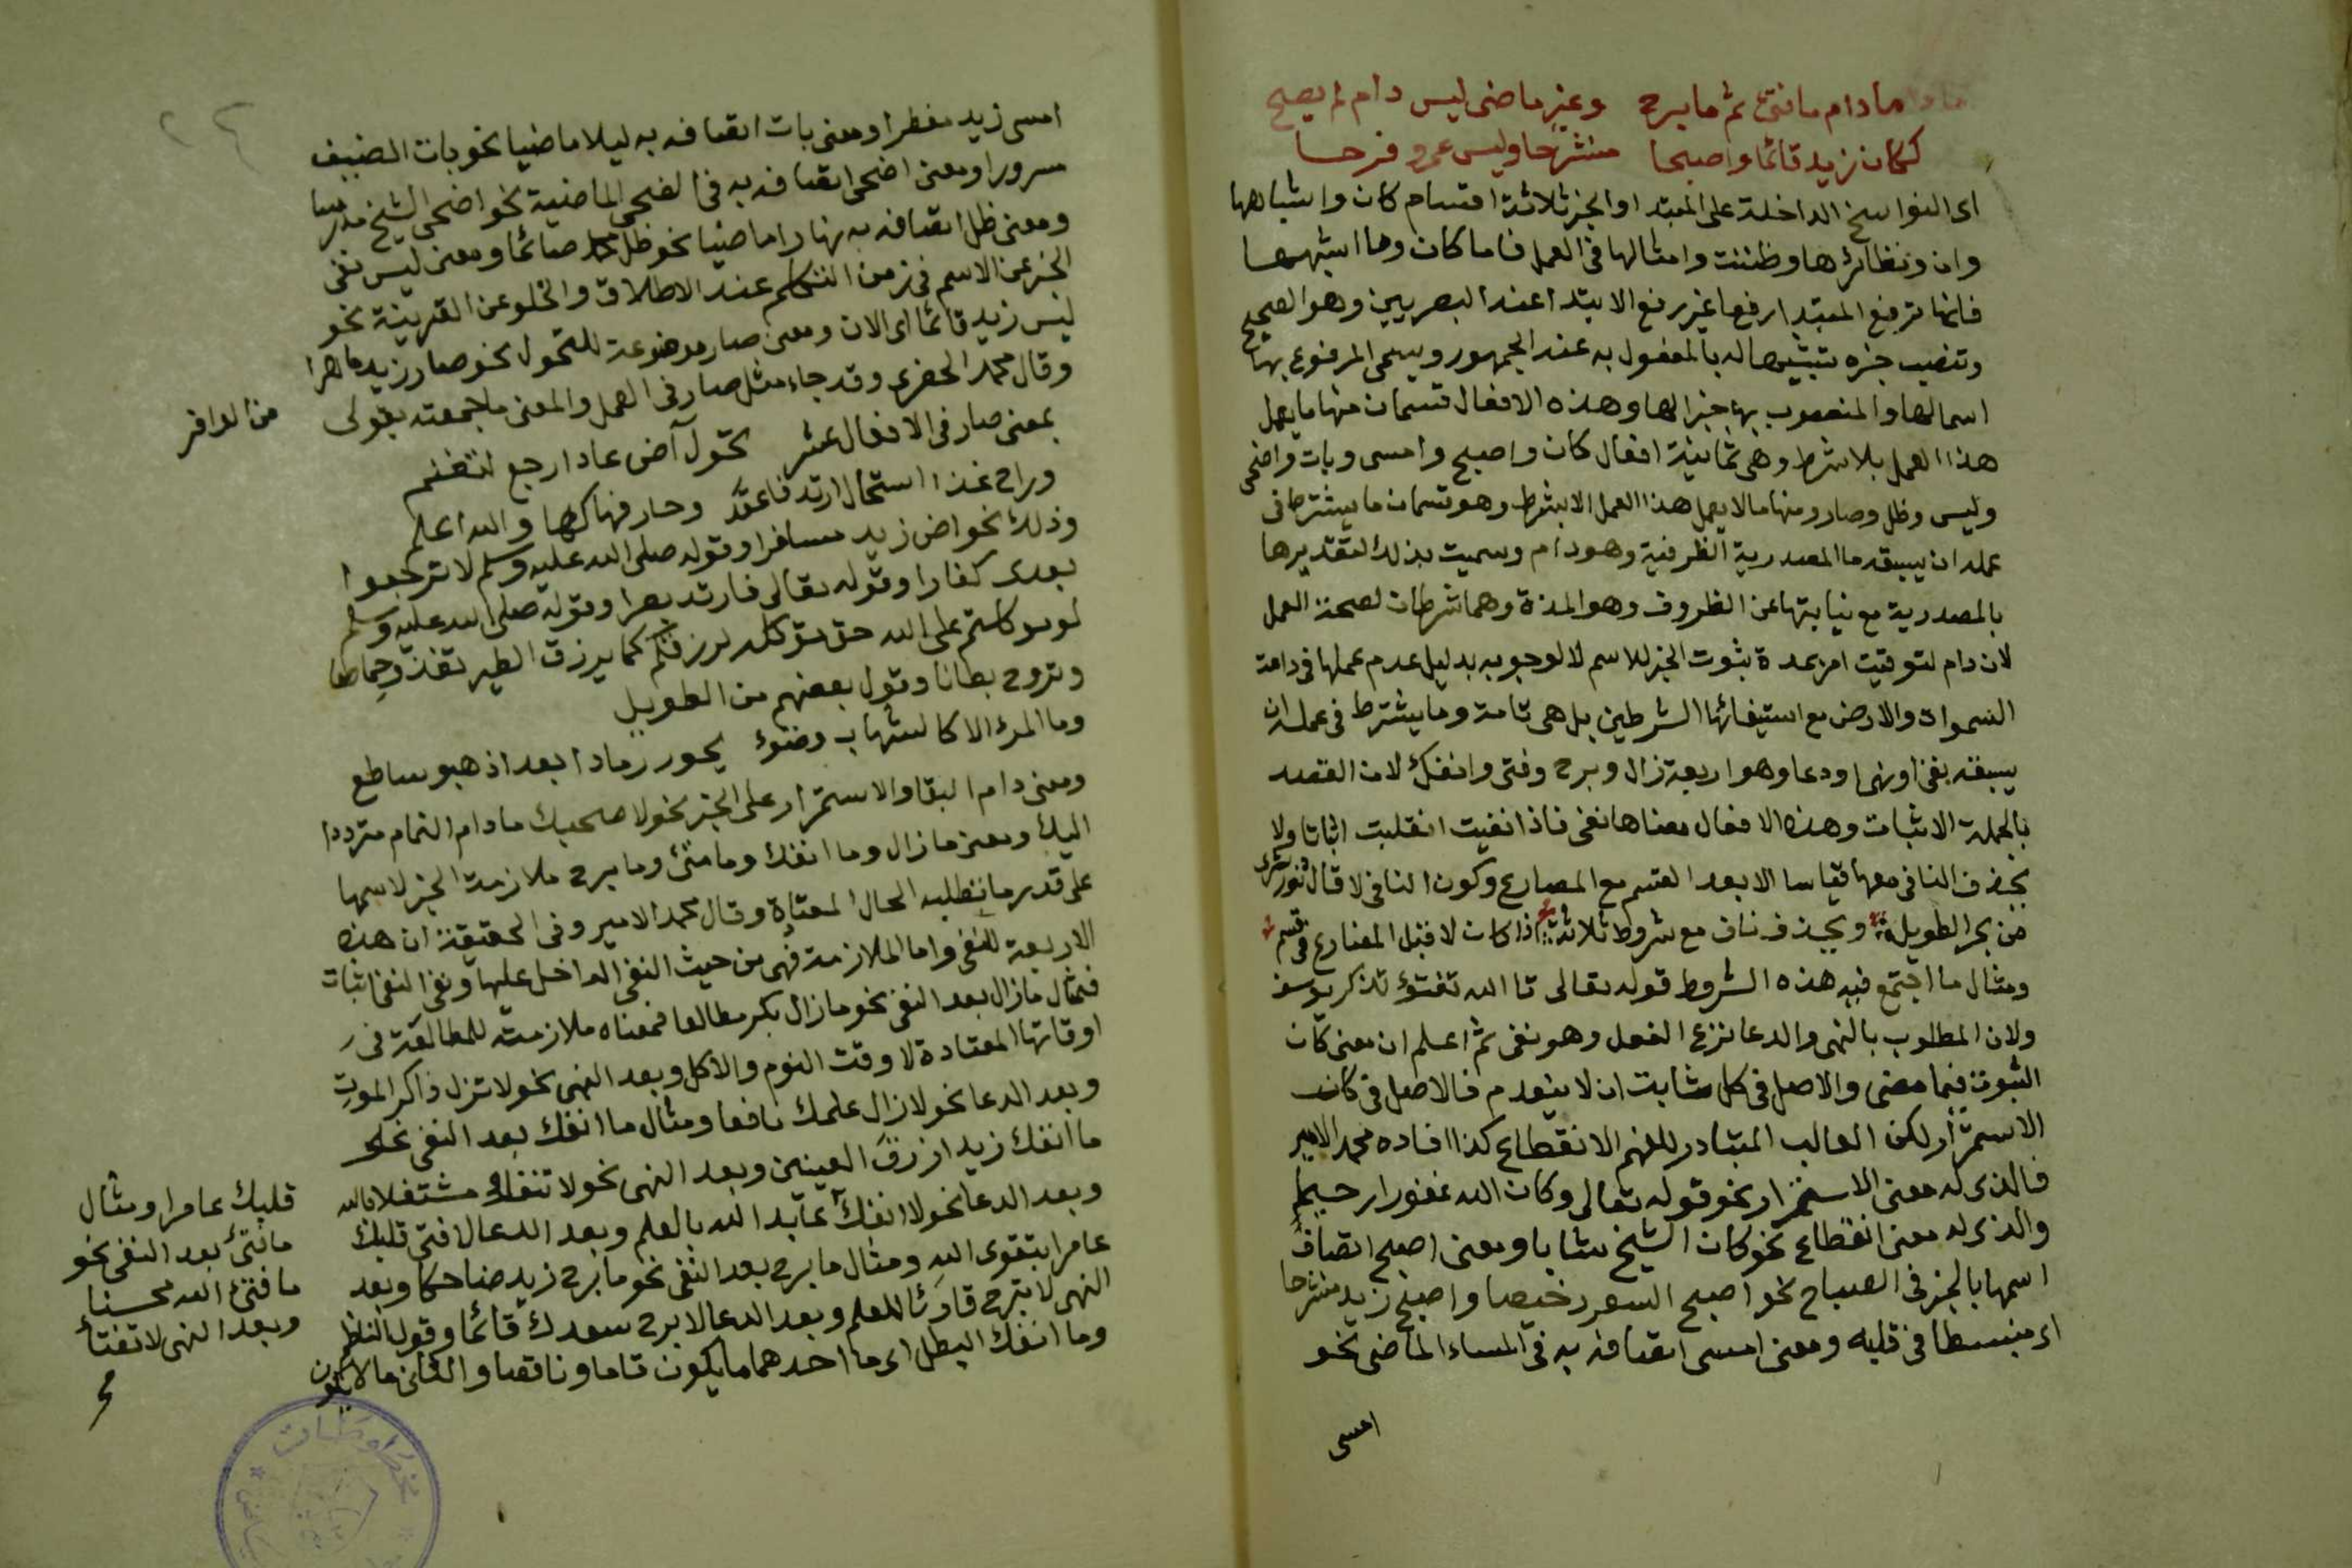 مادام مافتئ ثم مابرح وغير ماضى ليس دام لم يصح
ككان زيد قائما واصبحا منشرحا وليس عمرو فرحا
اى النواسخ الداخلة على المبتدا والخبر ثلاثة اقسام كان واشباهها
وان ونظائرها وظننت وامثالها فى العمل فاما كان وما اشبهها
فانها ترفع المبتدا رفعا غير رفع الابتدا عند البصريين وهو الصحيح
وتنصب خبره تشبيها له بالمفعول به عند الجمهور ويسمى المرفوع بها
اسما لها والمنصوب بها خبرا لها وهذه الافعال قسمان منها ما يعمل
هذا العمل بلا شرط وهى ثمانية افعال كان واصبح وامسى وبات واضحى
وليس وظل وصار ومنها ما لا يعمل هذا العمل الا بشرط وهو قسمان ما يشترط فى
عمله ان يسبقه ما المصدرية الظرفية وهو دام وسميت بذلك لتقديرها
بالمصدرية مع نيابتها عن الظروف وهو المدة وهما شرطان لصحة العمل
لان دام لتوقيت امر بمدة ثبوت الخبر للاسم لا لوجوبه بدليل عدم عملها فى دامت
السموات والارض مع استيفائها الشرطين بل هى تامة وما يشترط فى عمله ان
يسبقه نفى او نهى او دعا وهو اربعة زال وبرح وفتى وانفك لان القصد
بالجملة الاثبات وهذه الافعال معناها نفى فاذا نفيت انقلبت اثباتا ولا
يحذف النافى معها قياسا الا بعد القسم مع المضارع وكون النافى لا قال
من بحر الطويل ويحذف ناف مع شروط ثلاثة اذا كان لا قبل المضارع فى قسم
ومثال ما اجتمع فيه هذه الشروط قوله تعالى تا الله تفتؤ تذكر يوسف
ولان المطلوب بالنهى والدعا نزع الفعل وهو نفى ثم اعلم ان معنى كان
الثبوت فيما مضى والاصل فى كل ثابت ان لا ينعدم فالاصل فى كان
الاستمرار لكن الغالب المتبادر للفهم الانقطاع كذا افاده محمد الامير
فالذى له معنى الاستمرار نحو قوله تعالى وكان الله غفورا رحيما
والذى له معنى انقطاع نحو كان الشيخ شابا ومعنى اصبح اتصاف
اسمها بالخبر فى الصباح نحو اصبح السعر رخيصا واصبح زيد منشرحا
اى منبسطا فى قلبه ومعنى امسى اتصافه به فى المساء الماضى نحو
امسى
امسى زيد مفطرا ومعنى بات اتصافه به ليلا ماضيا نحو بات الضيف
مسرورا ومعنى اضحى اتصافه به فى الضحى الماضية نحو اضحى الشيخ مدرسا
ومعنى ظل اتصافه به نهارا ماضيا نحو ظل محمد صائما ومعنى ليس نفى
الخبر عن الاسم فى زمن التكلم عند الاطلاق والخلو عن القرينة نحو
ليس زيد قائما اى الان ومعنى صار موضوعة للتحول نحو صار زيد ماهرا
وقال محمد الخضرى وقد جاء مثل صار فى العمل والمعنى ما جمعته بقولى
من الوافر
بمعنى صار فى الافعال عشر تحول آض عاد ارجع لتغنم
وراح غدا استحال ارتد فاقعد وحار فهاكها والله اعلم
وذلك نحو اض زيد مسافرا وقوله صلى الله عليه وسلم لا ترجعوا
بعدى كفارا وقوله تعالى فارتد بصيرا وقوله صلى الله عليه وسلم
لو توكلتم على الله حق توكله لرزقكم كما يرزق الطير تغدو خماصا
وتروح بطانا وقول بعضهم من الطويل
وما المرء الا كالشهاب وضوؤ يحور رمادا بعد اذ هو ساطع
ومعنى دام البقا والاستمرار على الخبر نحو لا صحبك مادام النمام مترددا
اليك ومعنى مازال وما انفك وما فتئ وما برح ملازمة الخبر لاسمها
على قدر ما تطلبه الحال المعتادة وقال محمد الامير وفى الحقيقة ان هذه
الاربعة للنفى واما الملازمة فهى من حيث النفى الداخل عليها ونفى النفى اثبات
فمثال مازال بعد النفى نحو مازال بكر مطالعا فمعناه ملازمته للمطالعة فى
اوقاتها المعتادة لا وقت النوم والاكل وبعد النهى نحو لا تزل ذاكر الموت
وبعد الدعا نحو لا زال علمك نافعا ومثال ما انفك بعد النفى نحو
ما انفك زيد ازرق العينين وبعد النهى نحو لا تنفك مشتغلا بالله
وبعد الدعا نحو لا انفك عابد الله بالعلم وبعد الدعا لا فتى قلبك
عامرا بتقوى الله ومثال ما برح بعد النفى نحو ما برح زيد ضاحكا وبعد
النهى لا تبرح قارئا للعلم وبعد الدعا لا برح سعدك قائما وقول الناظم
وما انفك البطل اى ما احدهما ما يكون تاما وناقصا والثانى ما لا يكون
قلبك عامرا ومثال
مافتئ بعد النفى نحو
ما فتئ الله محسنا
وبعد النهى لا تفتأ